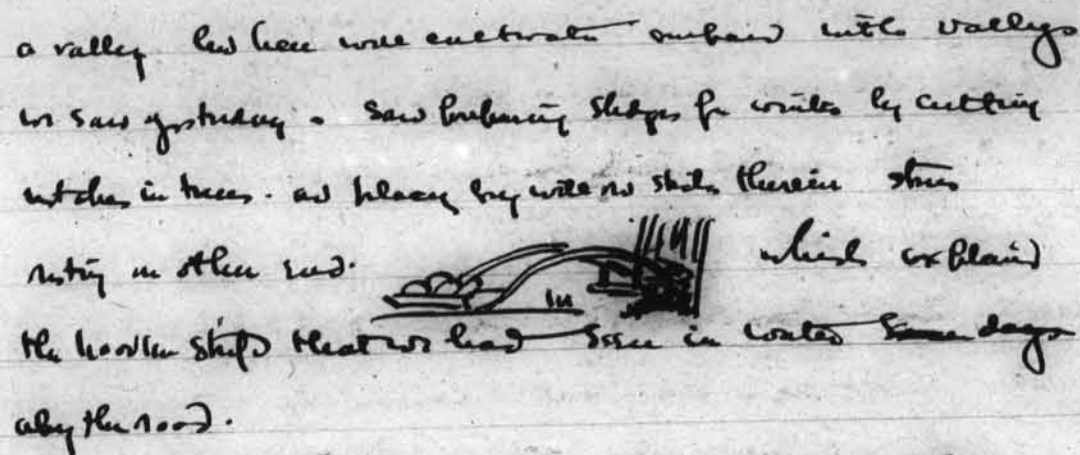 a valley. but here well cultivated compared with valleys
we saw yesterday. Saw preparing sledges for winter by cutting
notches in trees. and placing big willow sticks therein stones
resting on other end. which explained
the wooden strips that we had seen in water some days
along the road.